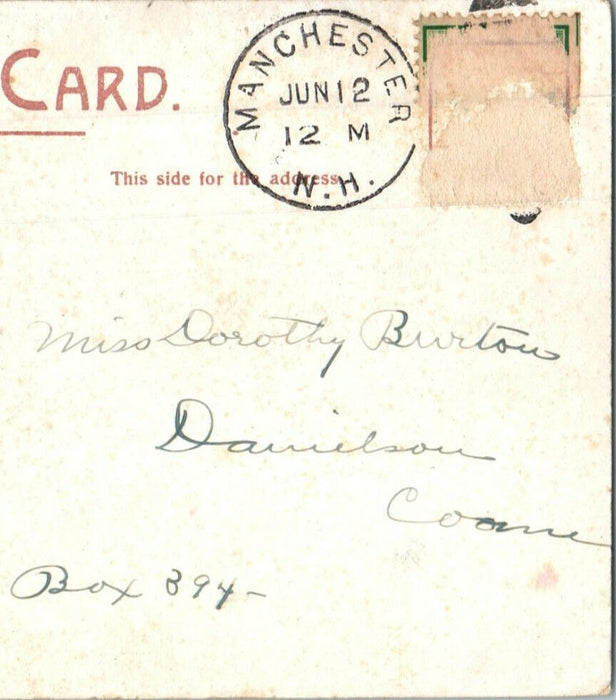 CARD.
MANCHESTER
JUN 12
12 M
N.H.
This side for the address
Miss Dorothy Burton
Danielson
Conn
Box 894-